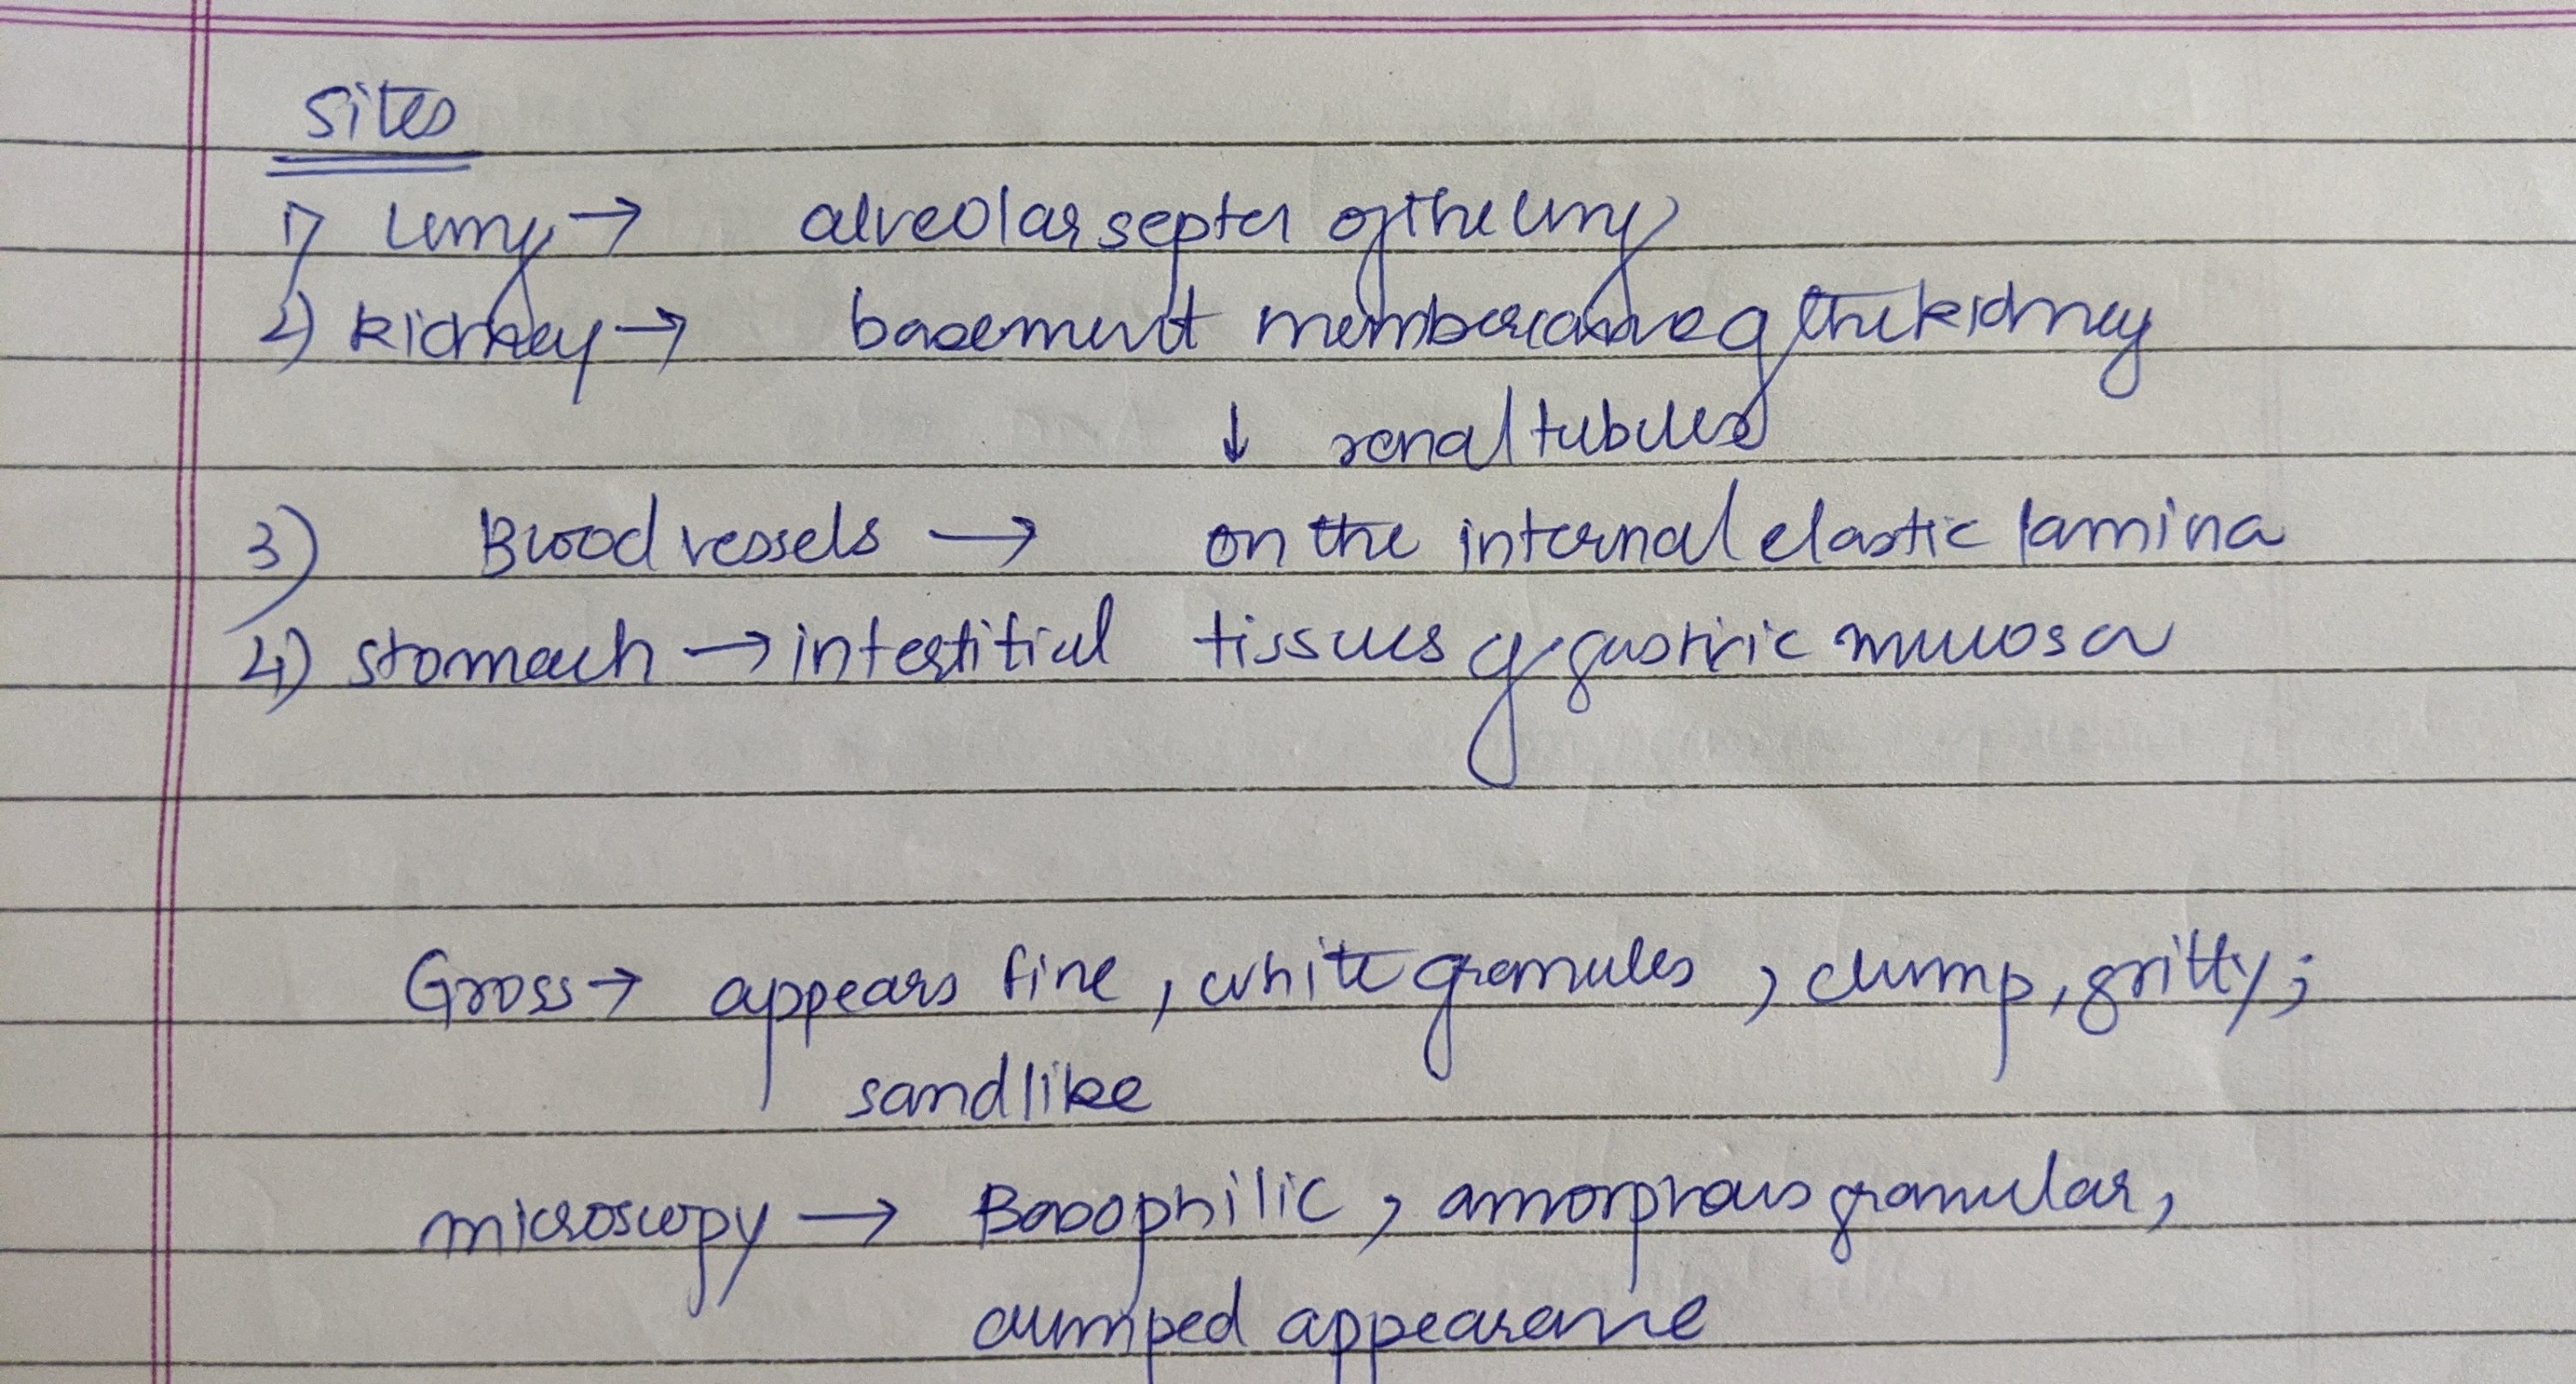 Sites
1) Lung → alveolar septa of the lung
2) kidney → basement membrane of the kidney
↓ renal tubules
3) Blood vessels → on the internal elastic lamina
4) stomach → intestitial tissues of gastric mucosa
Gross → appears fine, white granules, clump, gritty;
sandlike
microscopy → Basophilic, amorphous granular,
clumped appearance